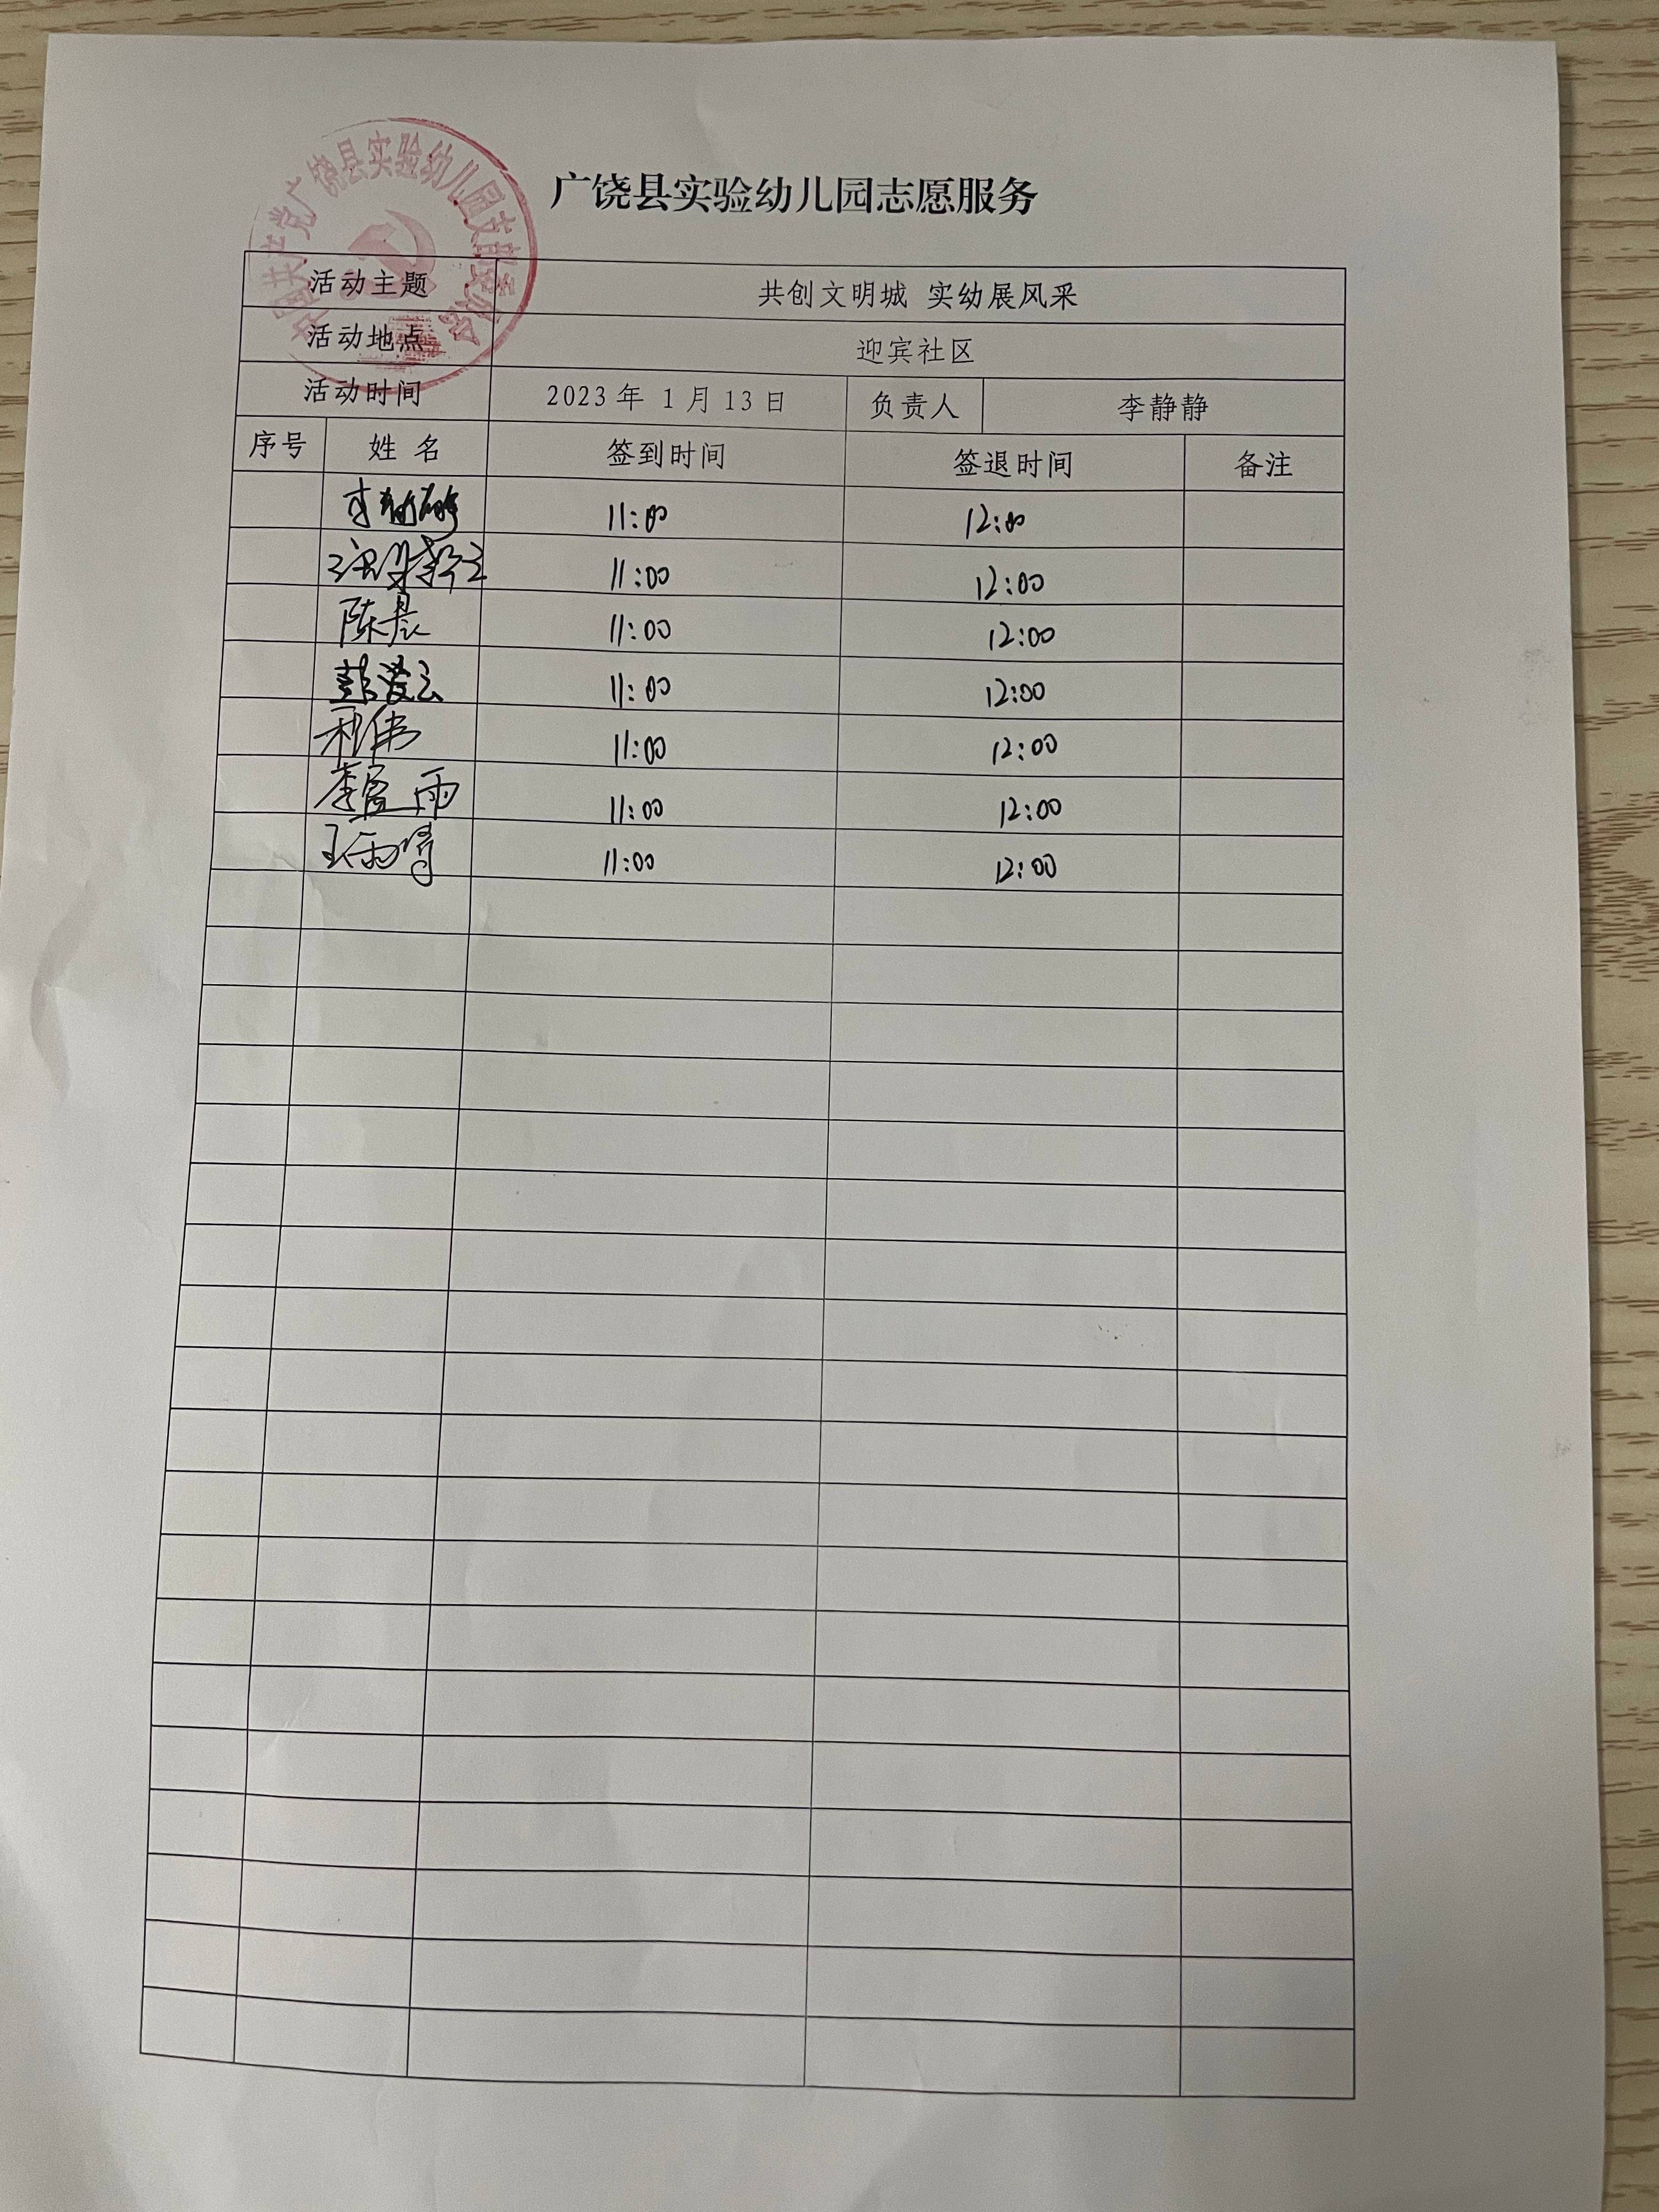 中国共产党广饶县实验幼儿园支部委员会
广饶县实验幼儿园志愿服务
活动主题 共创文明城 实幼展风采
活动地点 迎宾社区
活动时间 2023年 1月13日 负责人 李静静
序号 姓名 签到时间 签退时间 备注
11:00 12:00
11:00 12:00
陈晨 11:00 12:00
11:00 12:00
11:00 12:00
李宜雨 11:00 12:00
王雨晴 11:00 12:00